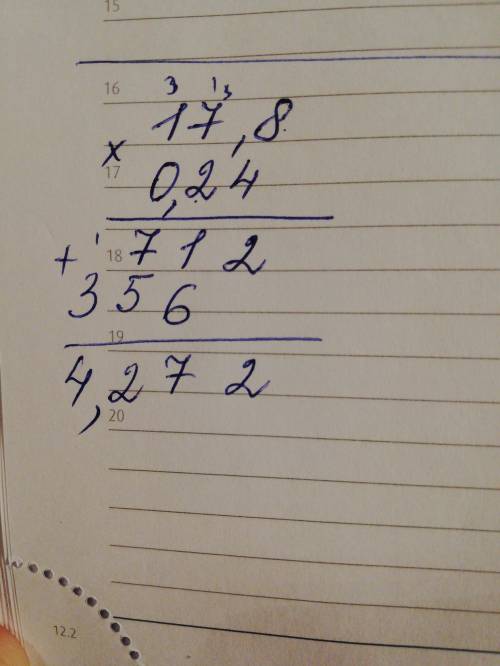 15
16 3 1 3
17,8
x
17 0,24
+ 1
18 712
356
19
4,272
20
12.2